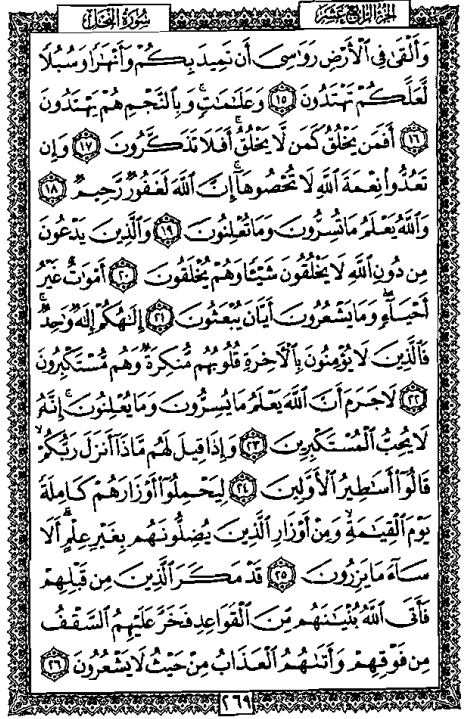 سُورَةُ النَّحْلِ
الجزء الرابع عشر
وَأَلْقَىٰ فِي الْأَرْضِ رَوَاسِيَ أَن تَمِيدَ بِكُمْ وَأَنْهَارًا وَسُبُلًا
لَّعَلَّكُمْ تَهْتَدُونَ ١٥ وَعَلَامَاتٍ ۚ وَبِالنَّجْمِ هُمْ يَهْتَدُونَ
١٦ أَفَمَن يَخْلُقُ كَمَن لَّا يَخْلُقُ ۗ أَفَلَا تَذَكَّرُونَ ١٧ وَإِن
تَعُدُّوا نِعْمَةَ اللَّهِ لَا تُحْصُوهَا ۗ إِنَّ اللَّهَ لَغَفُورٌ رَّحِيمٌ ١٨
وَاللَّهُ يَعْلَمُ مَا تُسِرُّونَ وَمَا تُعْلِنُونَ ١٩ وَالَّذِينَ يَدْعُونَ
مِن دُونِ اللَّهِ لَا يَخْلُقُونَ شَيْئًا وَهُمْ يُخْلَقُونَ ٢٠ أَمْوَاتٌ غَيْرُ
أَحْيَاءٍ ۖ وَمَا يَشْعُرُونَ أَيَّانَ يُبْعَثُونَ ٢١ إِلَٰهُكُمْ إِلَٰهٌ وَاحِدٌ ۚ
فَالَّذِينَ لَا يُؤْمِنُونَ بِالْآخِرَةِ قُلُوبُهُم مُّنكِرَةٌ وَهُم مُّسْتَكْبِرُونَ
٢٢ لَا جَرَمَ أَنَّ اللَّهَ يَعْلَمُ مَا يُسِرُّونَ وَمَا يُعْلِنُونَ ۚ إِنَّهُ
لَا يُحِبُّ الْمُسْتَكْبِرِينَ ٢٣ وَإِذَا قِيلَ لَهُم مَّاذَا أَنزَلَ رَبُّكُمْ ۙ
قَالُوا أَسَاطِيرُ الْأَوَّلِينَ ٢٤ لِيَحْمِلُوا أَوْزَارَهُمْ كَامِلَةً
يَوْمَ الْقِيَامَةِ ۙ وَمِنْ أَوْزَارِ الَّذِينَ يُضِلُّونَهُم بِغَيْرِ عِلْمٍ ۗ أَلَا
سَاءَ مَا يَزِرُونَ ٢٥ قَدْ مَكَرَ الَّذِينَ مِن قَبْلِهِمْ
فَأَتَى اللَّهُ بُنْيَانَهُم مِّنَ الْقَوَاعِدِ فَخَرَّ عَلَيْهِمُ السَّقْفُ
مِن فَوْقِهِمْ وَأَتَاهُمُ الْعَذَابُ مِنْ حَيْثُ لَا يَشْعُرُونَ ٢٦
٢٦٩